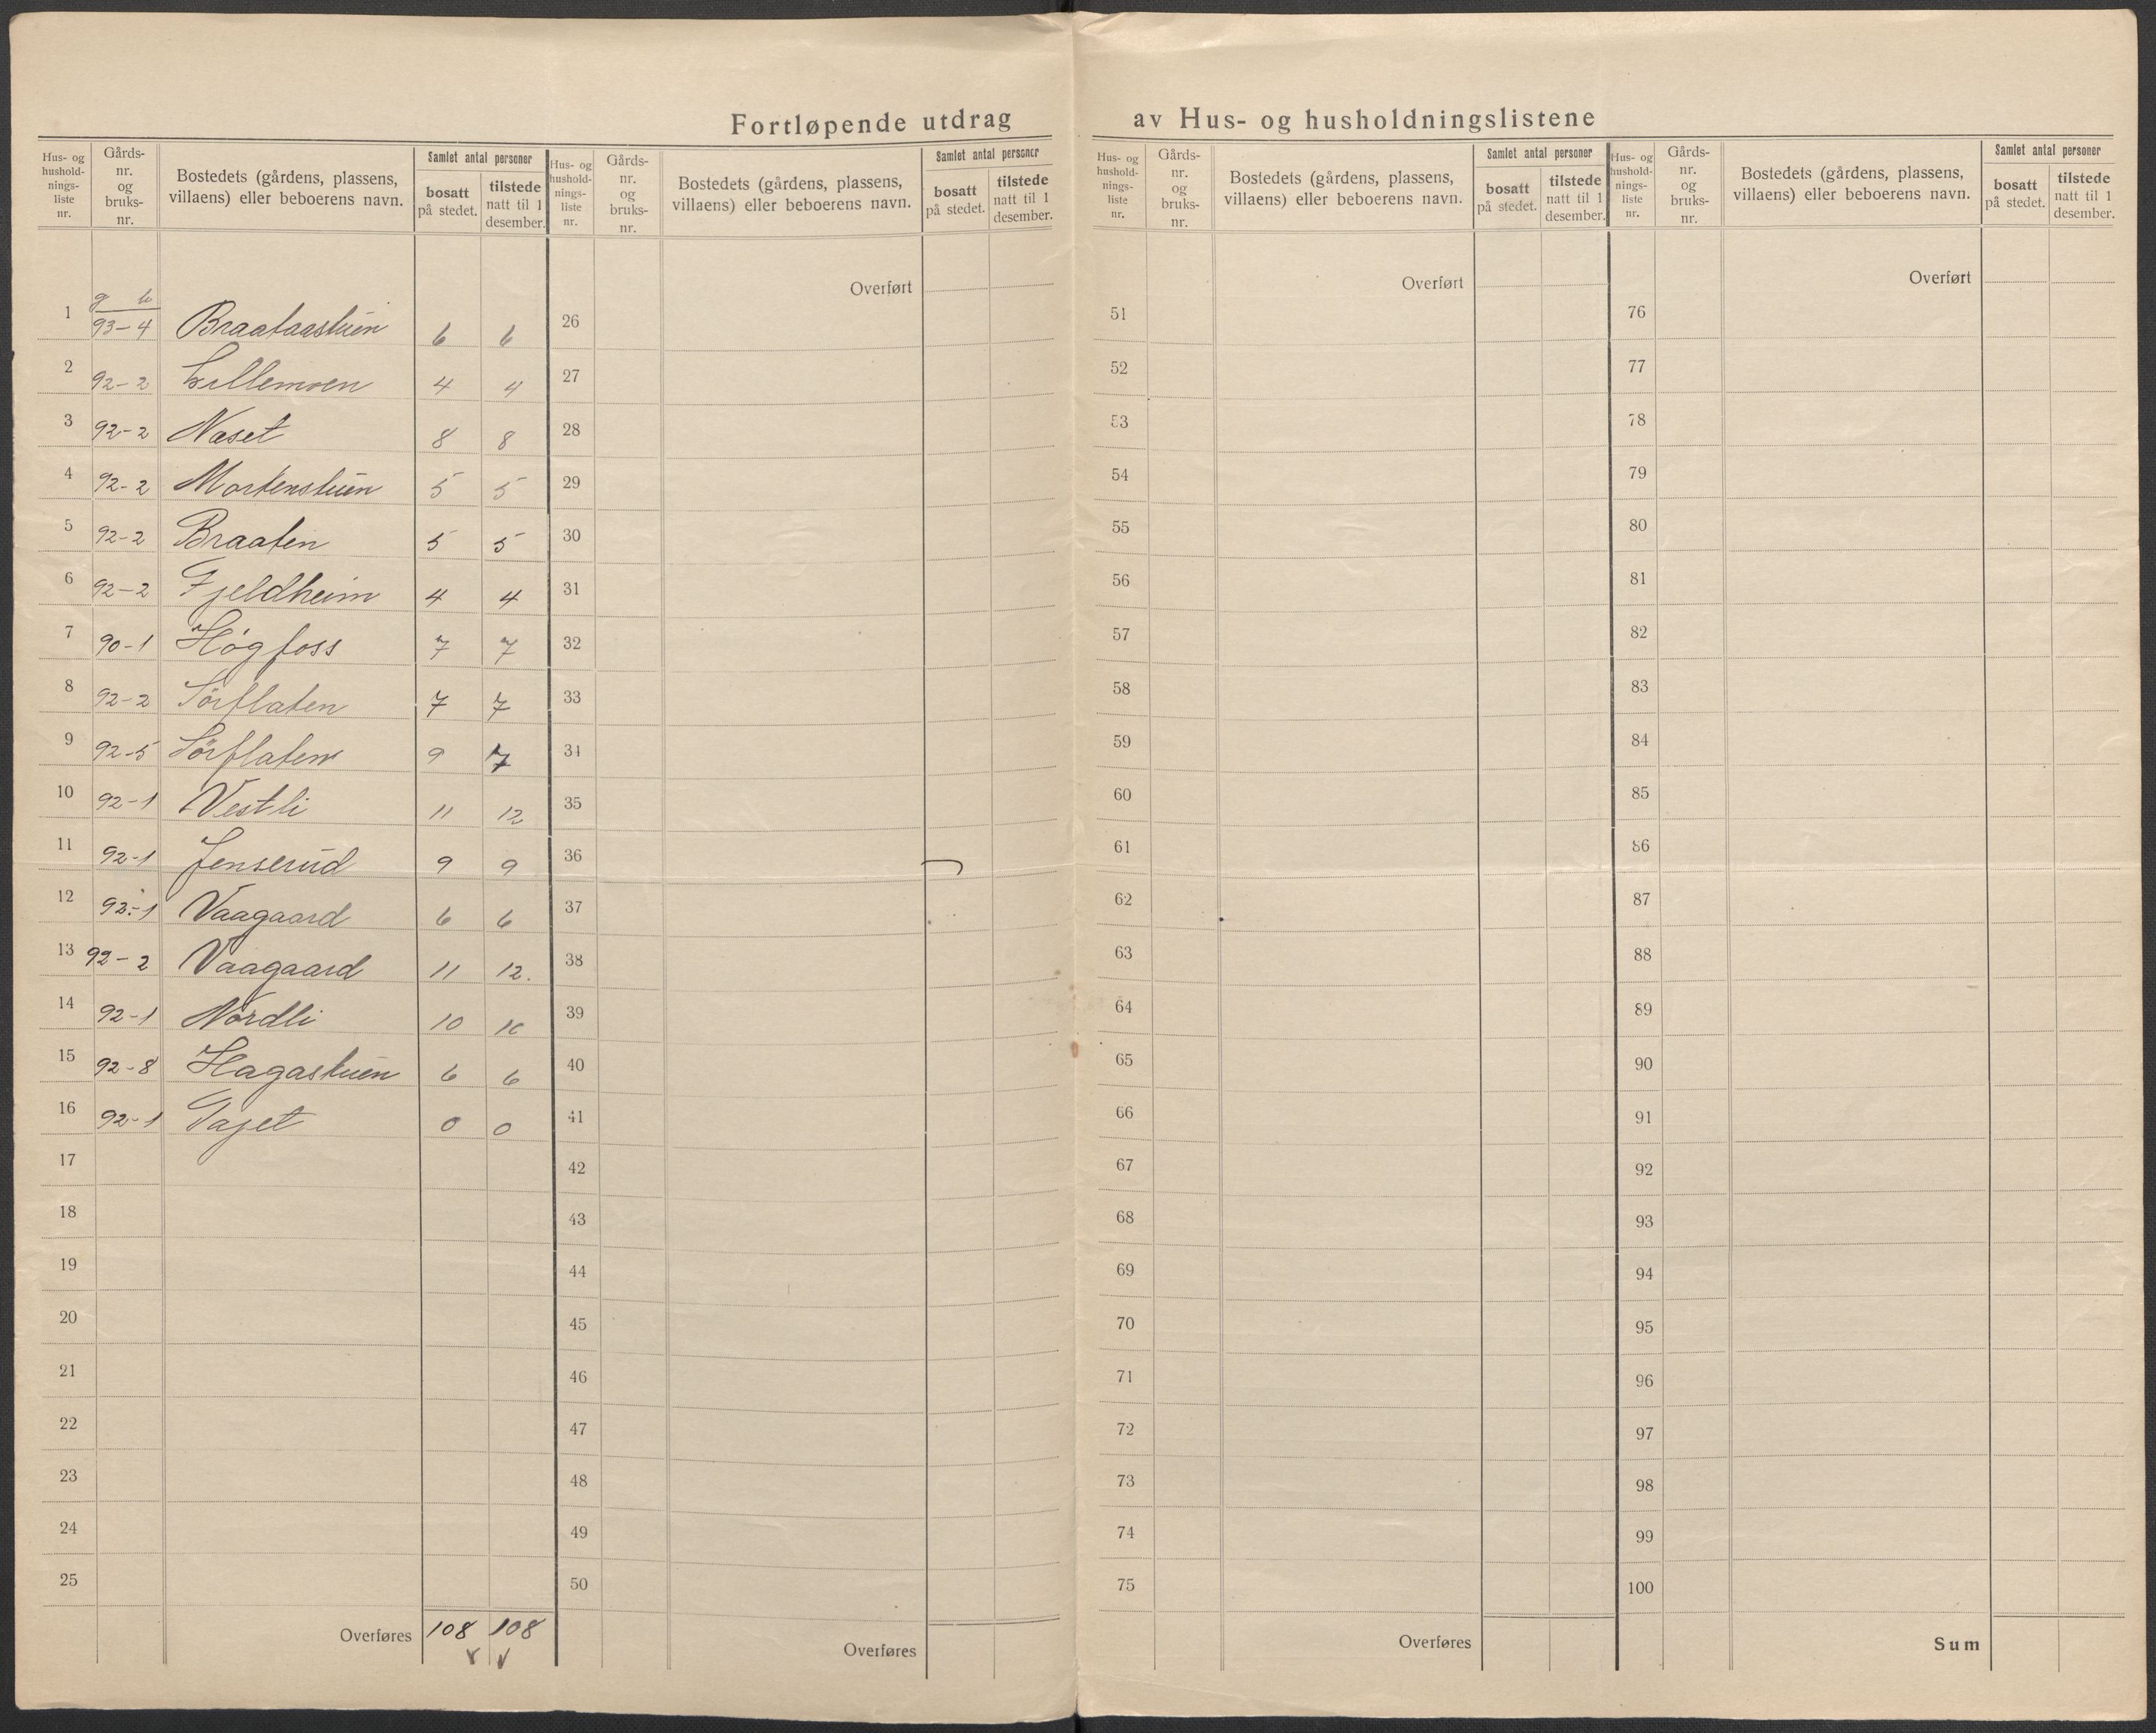 Fortløpende utdrag av Hus- og husholdningslistene
Hus- og husholdnings-liste nr. Gårds-nr. og bruks-nr. Bostedets (gårdens, plassens, villaens) eller beboerens navn. Samlet antal personer bosatt på stedet. tilstede natt til 1 desember.
g b
1 93-4 Braataastuen 6 6
2 92-2 Lillemoen 4 4
3 92-2 Næset 8 8
4 92-2 Mortenstuen 5 5
5 92-2 Braaten 5 5
6 92-2 Fjeldheim 4 4
7 90-1 Høgfoss 7 7
8 92-2 Sörflaten 7 7
9 92-5 Sörflaten 9 7
10 92-1 Vestli 11 12
11 92-1 Jenserud 9 9
12 92-1 Vaagaard 6 6
13 92-2 Vaagaard 11 12.
14 92-1 Nordli 10 10
15 92-8 Hagastuen 6 6
16 92-1 0 0
17
18
19
20
21
22
23
24
25
Overføres 108 108
Hus- og husholdnings-liste nr. Gårds-nr. og bruks-nr. Bostedets (gårdens, plassens, villaens) eller beboerens navn. Samlet antal personer bosatt på stedet. tilstede natt til 1 desember.
Overført
26
27
28
29
30
31
32
33
34
35
36
37
38
39
40
41
42
43
44
45
46
47
48
49
50
Overføres
Hus- og husholdnings-liste nr. Gårds-nr. og bruks-nr. Bostedets (gårdens, plassens, villaens) eller beboerens navn. Samlet antal personer bosatt på stedet. tilstede natt til 1 desember.
Overført
51
52
53
54
55
56
57
58
59
60
61
62
63
64
65
66
67
68
69
70
71
72
73
74
75
Overføres
Hus- og husholdnings-liste nr. Gårds-nr. og bruks-nr. Bostedets (gårdens, plassens, villaens) eller beboerens navn. Samlet antal personer bosatt på stedet. tilstede natt til 1 desember.
Overført
76
77
78
79
80
81
82
83
84
85
86
87
88
89
90
91
92
93
94
95
96
97
98
99
100
Sum